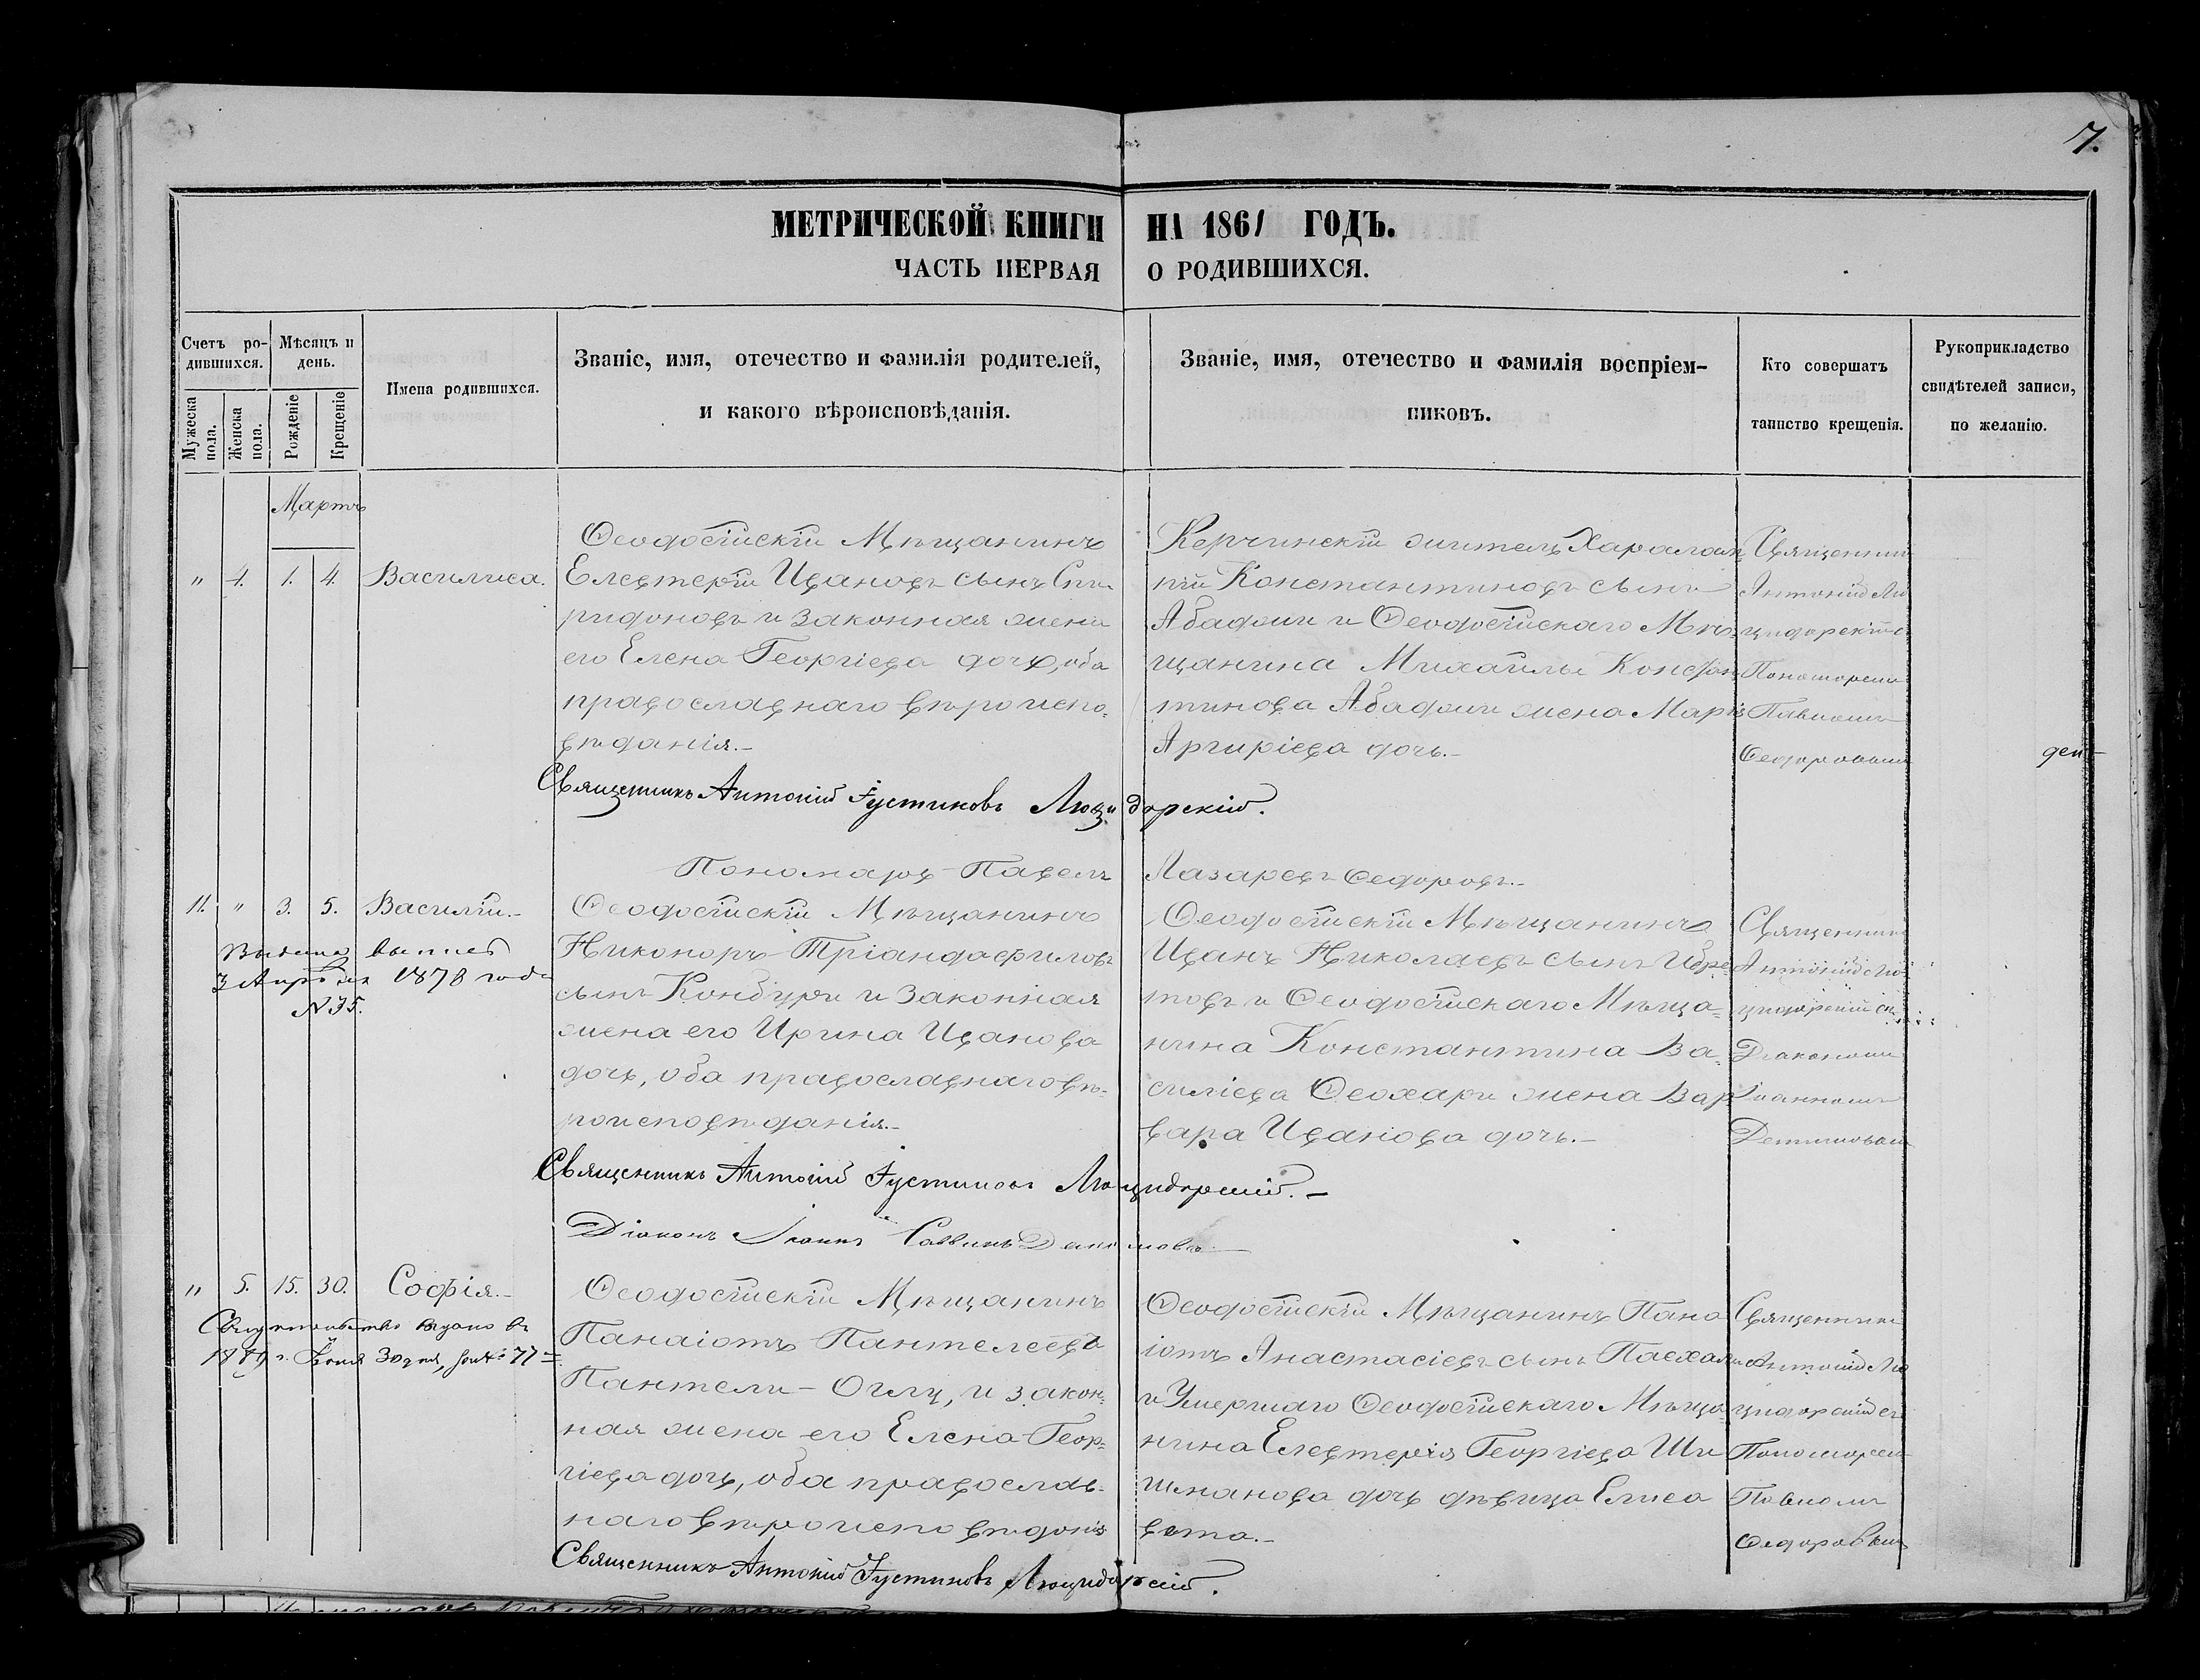 7.
МЕТРИЧЕСКОЙ КНИГИ НА 1861 ГОДЪ.
ЧАСТЬ ПЕРВАЯ О РОДИВШИХСЯ.
Счетъ ро-
дившихся.
Мужеска пола.
Женска пола.
Мѣсяцъ и
день.
Рожденіе
Крещеніе
Имена родившихся.
Званіе, имя, отечество и фамилія родителей,
и какого вѣроисповѣданія.
Званіе, имя, отечество и фамилія воспріем-
никовъ.
Кто совершатъ
таинство крещенія.
Рукоприкладство
свидѣтелей записи,
по желанію.
Мартъ
" 4. 1. 4. Василиса.
Ѳеодосійскій Мѣщанинъ
Елевтерій Ивановъ сынъ Спи-
ридоновъ и законная жена
его Елена Георгіева дочь, оба
православнаго вѣроиспо-
вѣданія.-
Керчинскій житель Харалам-
пій Константиновъ сынъ
Абаджи и Ѳеодосійскаго Мѣ-
щанина Михаила Констан-
тинова Абаджи жена Марія
Аргиріева дочь.-
Священник
Антоній Лю
цидорскій с
Пономоремъ
Павломъ
Ѳеодоровым
Священникъ Антоній Іустиновъ Люцидорскій.
Пономарь Павелъ Лазаревъ Ѳедоровъ.-
11. " 3. 5. Василій.-
3 Апрѣля 1878 года
N 35.
Ѳеодосійскій Мѣщанинъ
Никоноръ Тріандафиловъ
сынъ Конбури и законная
жена его Ирина Иванова
дочь, оба православнаго вѣ-
роисповѣданія.-
Ѳеодосійскій Мѣщанинъ
Иванъ Николаевъ сынъ
товъ и Ѳеодосійскаго Мѣща-
нина Константина Ва-
силіева Ѳеохари жена Вар
вара Иванова дочь.-
Священник
Антоній Лю
цидорскій съ
Діакономъ
Іоанномъ
Священникъ Антоній Іустиновъ Люцидорскій.-
Діаконъ Іоаннъ Саввинъ
" 5. 15. 30. Софія.-
Свидѣтельство выдано въ
Ѳеодосійскій Мѣщанинъ
Панаіотъ Пантелеевъ
Пантели-Оглу, и закон-
ная жена его Елена Геор-
гіева дочь, оба православ-
наго вѣроисповѣданія
Ѳеодосійскій Мѣщанинъ Пана
іотъ Анастасіевъ сынъ Пасхали
и Умершаго Ѳеодосійскаго Мѣща
нина Елевтерія Георгіева Ши
шманова дочь дѣвица Елиса
вета.-
Священник
Антоній Лю
цидорскій съ
Пономорем
Павломъ
Ѳедоровым
Священникъ Антоній Іустиновъ Люцидорскій.